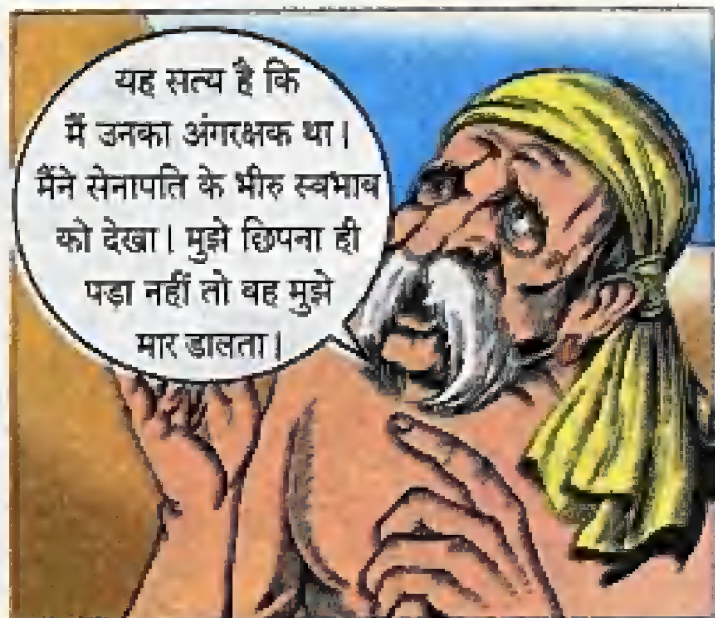 यह सत्य है कि
मैं उनका अंगरक्षक था।
मैंने सेनापति के भीरु स्वभाव
को देखा। मुझे छिपना ही
पड़ा नहीं तो वह मुझे
मार डालता।